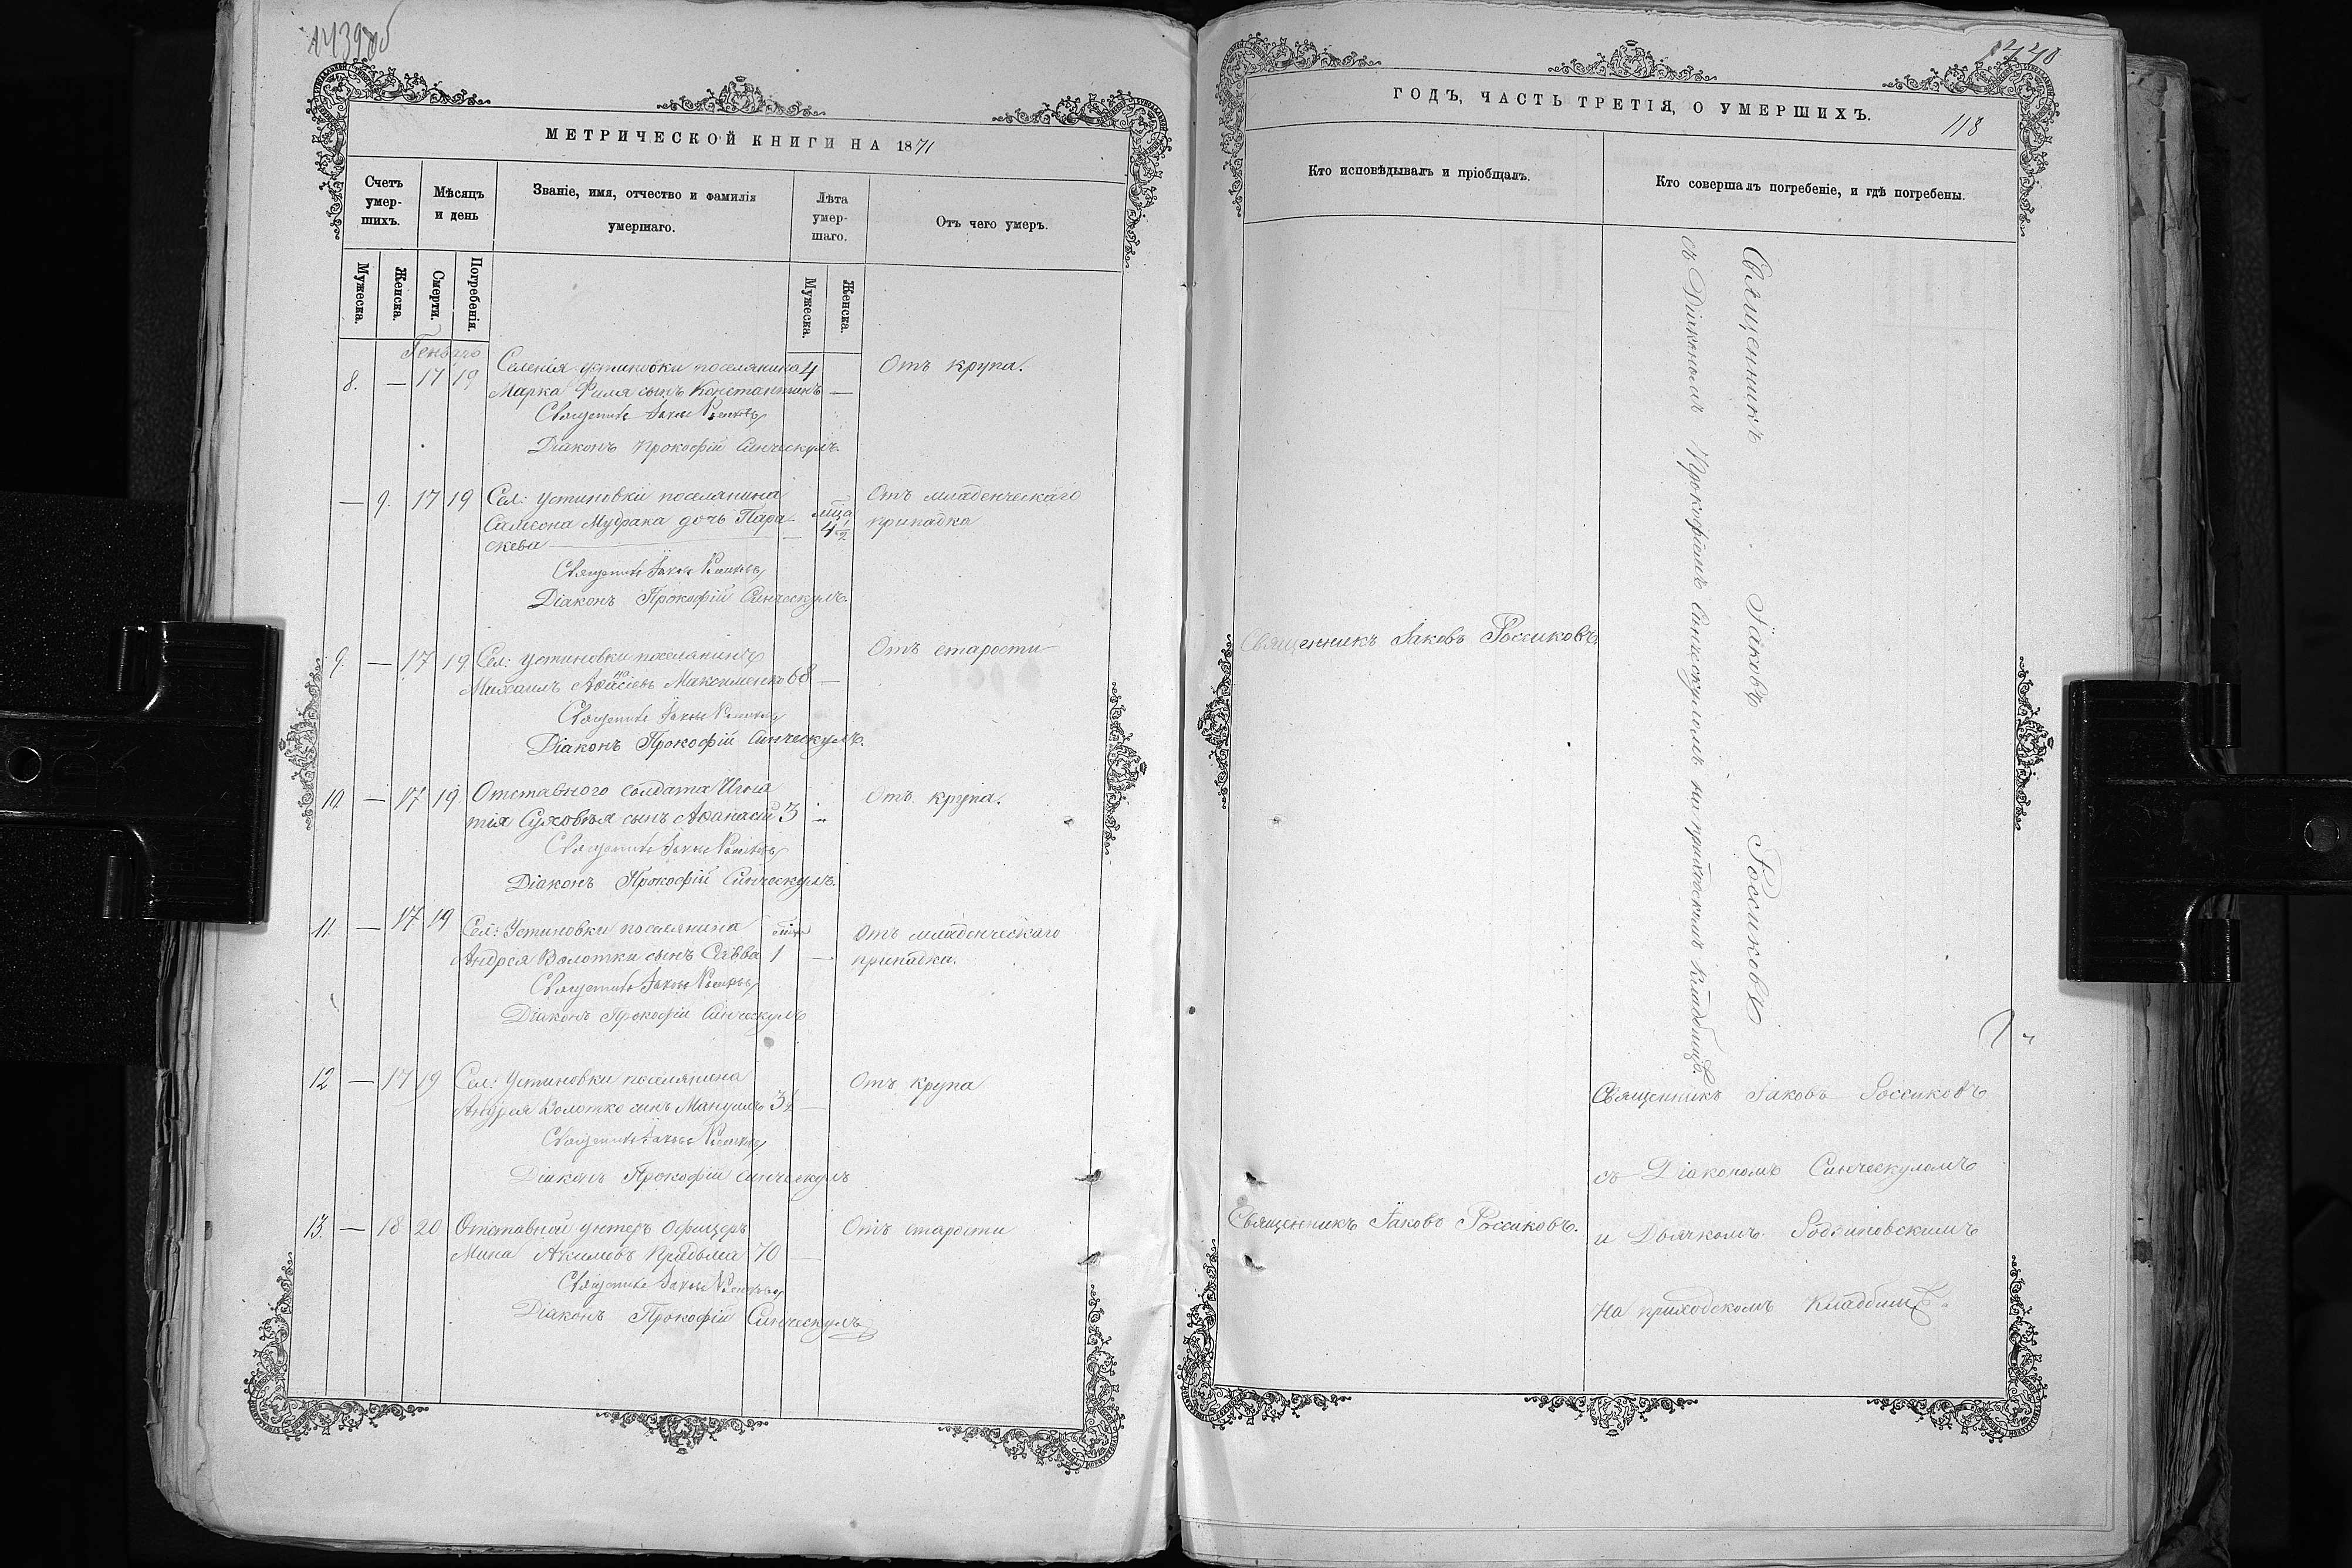 1439об
МЕТРИЧЕСКОЙ КНИГИ НА 1871
Счетъ умер-шихъ.
Мѣсяцъ и день
Званіе, имя, отчество и фамилія умершаго.
Лѣта умер-шаго.
Отъ чего умеръ.
Мужеска.
Женска.
Смерти.
Погребенія.
Мужеска.
Женска.
Генварь
8. — 17 19 Селенія Устиновки поселянина 4 Отъ крупа.
Марка Филя сынъ Константинъ —
Священникъ Іаковъ Россиковъ
Діаконъ Прокофій Синческулъ.
— 9. 17 19 Сел: Устиновки поселянина мца Отъ младенческаго
Самсона Мудрака дочь Пара- — 4 1/2 припадка
скева
Священникъ Іаковъ Россиковъ
Діаконъ Прокофій Синческулъ.
9. — 17 19 Сел: Устиновки поселянинъ Отъ старости
Михаилъ Максименко 68 —
Священникъ Іаковъ Россиковъ
Діаконъ Прокофій Синческулъ.
10. — 17 19 Отставного солдата Игна Отъ крупа.
тія Суховѣя сынъ Аѳанасій 3 —
Священникъ Іаковъ Россиковъ
Діаконъ Прокофій Синческулъ.
11. — 17 19 Сел: Устиновки поселянина Отъ младенческаго
Андрея Волотки сынъ Савва 1 — припадки.
Священникъ Іаковъ Россиковъ
Діаконъ Прокофій Синческулъ
12 — 17 19 Сел: Устиновки поселянина Отъ крупа
Андрея Волотко сынъ Мануилъ 3 1/2 —
Священникъ Іаковъ Россиковъ
Діаконъ Прокофій Синческулъ
13. — 18 20 Отставной унтеръ офицеръ Отъ старости
Мина Акимовъ 70 —
Священникъ Іаковъ Россиковъ
Діаконъ Прокофій Синческулъ
1440
ГОДЪ, ЧАСТЬ ТРЕТІЯ, О УМЕРШИХЪ.
118
Кто исповѣдывалъ и пріобщалъ.
Кто совершалъ погребеніе, и гдѣ погребены.
Священникъ Іаковъ Россиковъ
Священникъ Іаковъ Россиковъ
съ Діакономъ Прокофіемъ Синческуломъ на приходскомъ кладбищѣ.
Священникъ Іаковъ Россиковъ
съ Діакономъ Синческуломъ
Священникъ Іаковъ Россиковъ.
и Дьячкомъ Родзиновскимъ
на приходскомъ кладбищѣ.